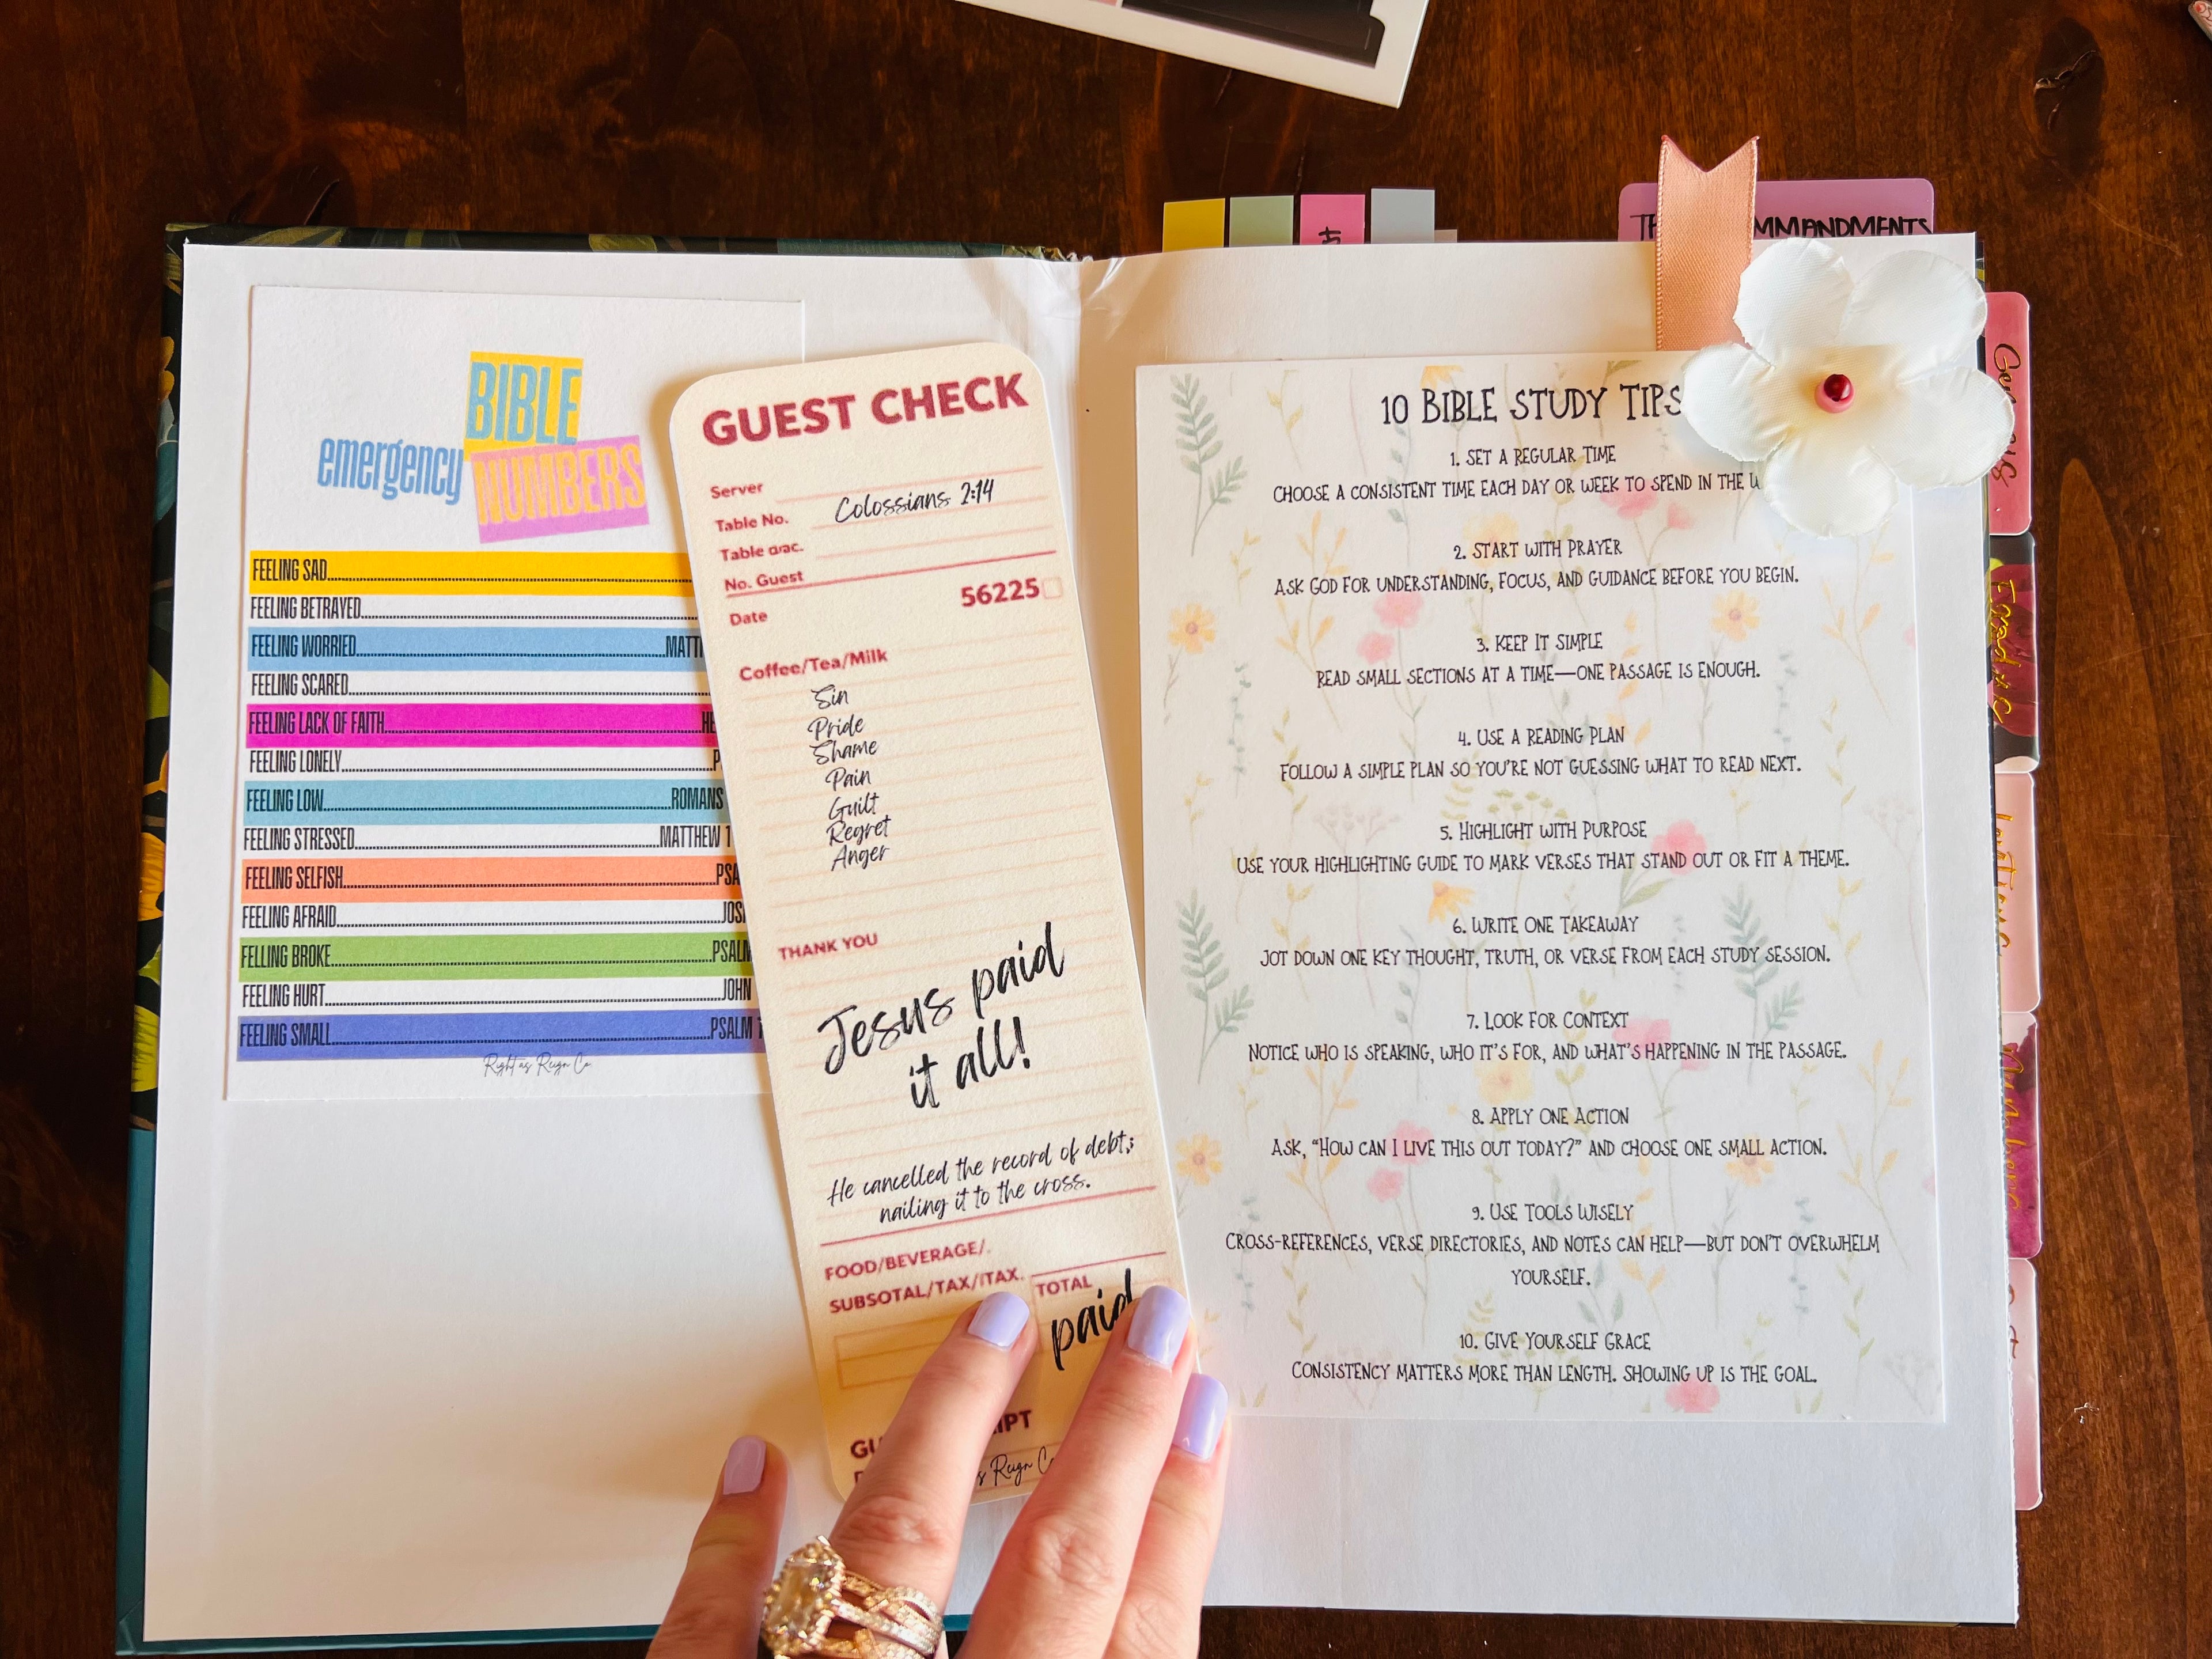 BIBLE
emergency NUMBERS
FEELING SAD
FEELING BETRAYED
FEELING WORRIED
FEELING SCARED
FEELING LACK OF FAITH
FEELING LONELY
FEELING LOW ROMANS
FEELING STRESSED MATTHEW
FEELING SELFISH
FEELING AFRAID
FELLING BROKE PSALM
FEELING HURT JOHN
FEELING SMALL PSALM
Right as Reign Co
GUEST CHECK
Server
Table No. Colossians 2:14
Table arac.
No. Guest
56225
Date
Coffee/Tea/Milk
Sin
Pride
Shame
Pain
Guilt
Regret
Anger
THANK YOU
Jesus paid
it all!
He cancelled the record of debt;
nailing it to the cross.
FOOD/BEVERAGE/.
SUBSOTAL/TAX/ITAX. TOTAL
paid
Reign Co
COMMANDMENTS
10 BIBLE STUDY TIPS
1. SET A REGULAR TIME
CHOOSE A CONSISTENT TIME EACH DAY OR WEEK TO SPEND IN THE
2. START WITH PRAYER
ASK GOD FOR UNDERSTANDING, FOCUS, AND GUIDANCE BEFORE YOU BEGIN.
3. KEEP IT SIMPLE
READ SMALL SECTIONS AT A TIME—ONE PASSAGE IS ENOUGH.
4. USE A READING PLAN
FOLLOW A SIMPLE PLAN SO YOU'RE NOT GUESSING WHAT TO READ NEXT.
5. HIGHLIGHT WITH PURPOSE
USE YOUR HIGHLIGHTING GUIDE TO MARK VERSES THAT STAND OUT OR FIT A THEME.
6. WRITE ONE TAKEAWAY
JOT DOWN ONE KEY THOUGHT, TRUTH, OR VERSE FROM EACH STUDY SESSION.
7. LOOK FOR CONTEXT
NOTICE WHO IS SPEAKING, WHO IT'S FOR, AND WHAT'S HAPPENING IN THE PASSAGE.
8. APPLY ONE ACTION
ASK, "HOW CAN I LIVE THIS OUT TODAY?" AND CHOOSE ONE SMALL ACTION.
9. USE TOOLS WISELY
CROSS-REFERENCES, VERSE DIRECTORIES, AND NOTES CAN HELP—BUT DON'T OVERWHELM
YOURSELF.
10. GIVE YOURSELF GRACE
CONSISTENCY MATTERS MORE THAN LENGTH. SHOWING UP IS THE GOAL.
Genesis
Exodus
Leviticus
Numbers